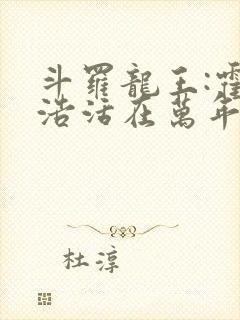 斗羅龍王:霍
浩活在萬年
杜淳